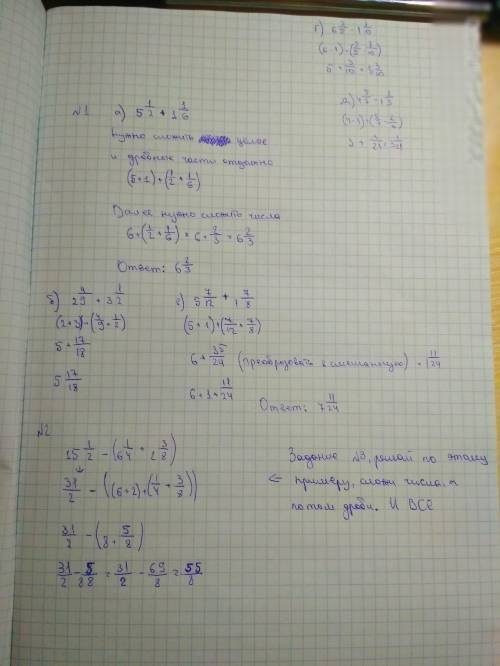 г) 6 2/5 - 1 1/10
(6-1)+(2/5-1/10)
5+3/10=5 3/10
(4-1)+
№1 а) 5 1/2 + 1 1/6
Нужно сложить целое
и дробные части отдельно
(5+1)+(1/2+1/6)
Далее нужно сложить числа
6+(1/2+1/6)=6+2/3=6 2/3
Ответ: 6 2/3
б) 2 4/9 + 3 1/2
(2+3)+(4/9+1/2)
5+17/18
5 17/18
5 7/12 + 1 7/8
(5+1)+(7/12+7/8)
6+35/24 (преобразовать в смешанную) = 11/24
6+1+11/24
Ответ: 7 11/24
№2
15 1/2 - (6 1/4 + 2 3/8)
31/2 - ((6+2)+(1/4+3/8))
31/2 - (8+5/8)
31/2 - 5/88 = 31/2 - 69/8 = 55/8
Задание №3, решай по этому
← примеру, сложи числа, а
потом дроби. И ВСЕ